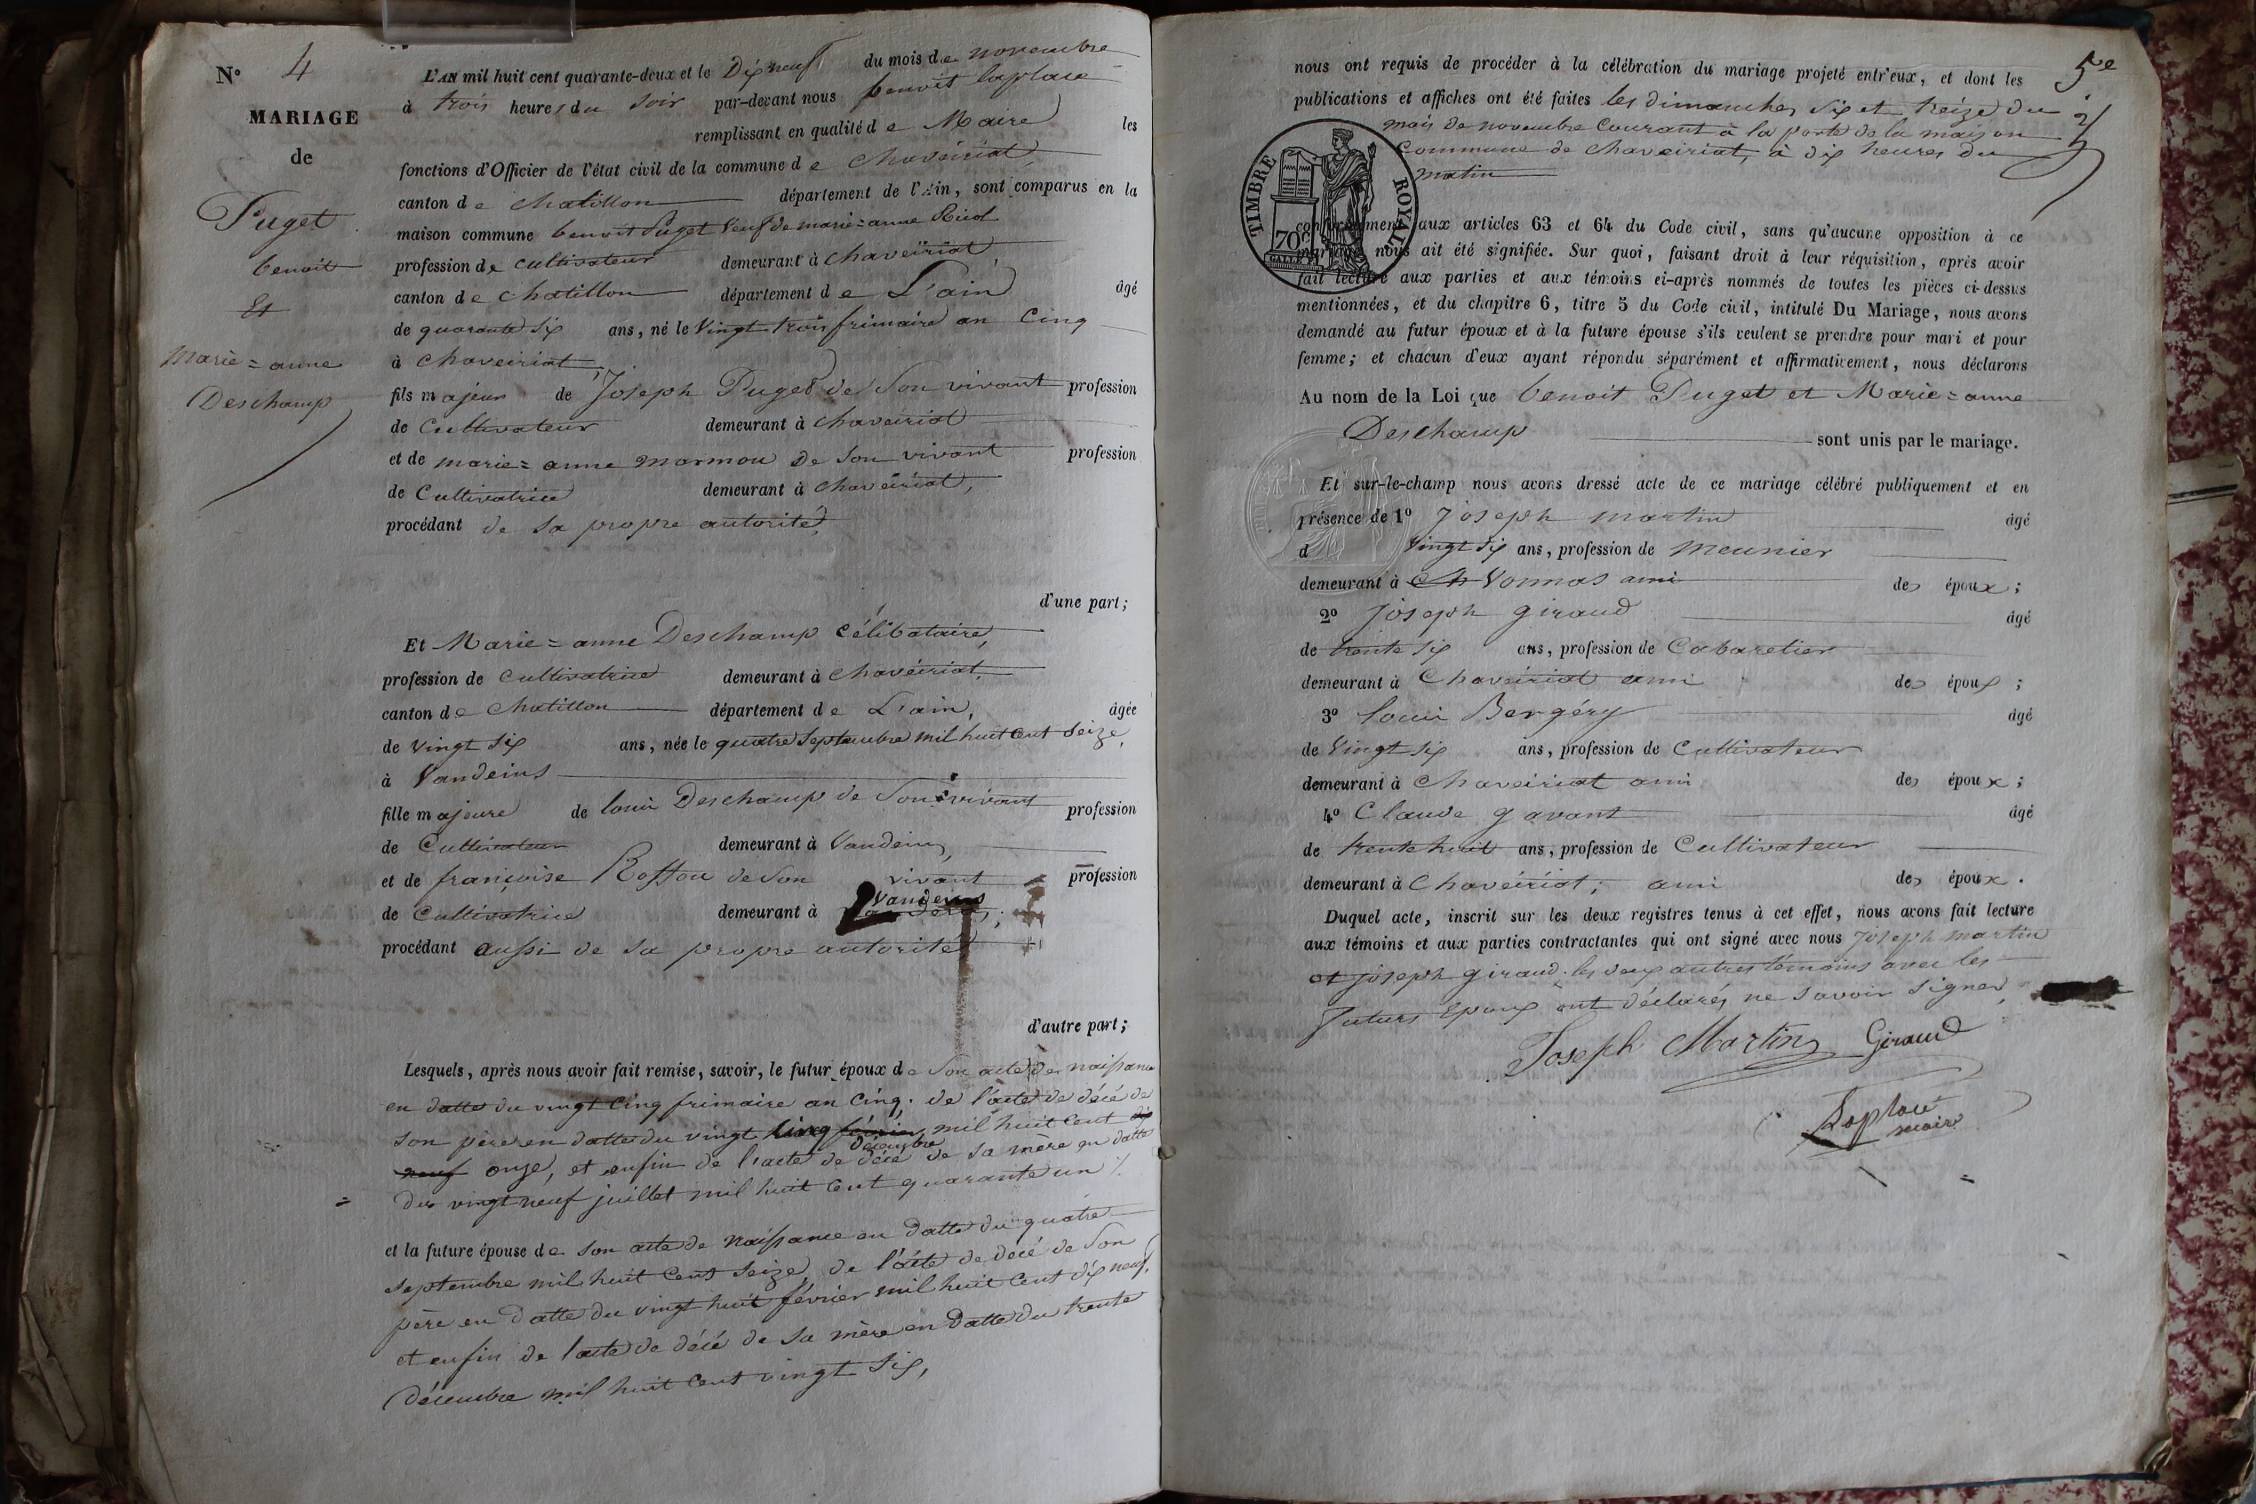 N° 4
MARIAGE
de
Puget
benoit
Et
Marie=anne
Deschamp
L'AN mil huit cent quarante-deux et le Dix neuf du mois de novembre
à trois heures du soir par-devant nous benoit laplace
remplissant en qualité de Maire les
fonctions d'Officier de l'état civil de la commune de chaveiriat,
canton de chatillon département de l'Ain, sont comparus en la
maison commune benoit Puget veuf de marie=anne
profession de cultivateur demeurant à chaveiriat
canton de chatillon département de L'ain âgé
de quarante six ans, né le vingt trois frimaire an cinq
à chaveiriat,
fils majeur de Joseph Puget de son vivant profession
de Cultivateur demeurant à chaveiriat
et de marie=anne marmou de son vivant profession
de Cultivatrice demeurant à chaveiriat,
procédant de sa propre autorité,
d'une part;
Et Marie=anne Deschamp célibataire,
profession de cultivatrice demeurant à chavéiriat,
canton de chatillon département de L'ain, âgée
de vingt six ans, née le quatre septembre mil huit cent seize,
à Vandeins
fille majeure de louis Deschamp de son vivant profession
de Cultivateur demeurant à Vandeins,
et de françoise Roffou de son vivant profession
de Cultivatrice demeurant à Vandeins
procédant aussi de sa propre autorité
d'autre part;
Lesquels, après nous avoir fait remise, savoir, le futur époux de son acte de naissance
en datte du vingt cinq frimaire an cinq. de l'acte de décé de
son père en datte du vingt cinq février décembre mil huit cent dix
neuf onze, et enfin de l'acte de décé de sa mère en datte
du vingt neuf juillet mil huit cent quarante un
et la future épouse de son acte de naissance en datte du quatre
septembre mil huit cent seize, de l'acte de décé de son
père en datte du vingt huit février mil huit cent dix neuf,
et enfin de l'acte de décé de sa mère en datte du trente
décembre mil huit cent vingt six,
5e
nous ont requis de procéder à la célébration du mariage projeté entr'eux, et dont les
publications et affiches ont été faites les dimanches six et treize du
mois de novembre Courant à la porte de la maison
Commune de chaveiriat, à dix heures du
matin
TIMBRE ROYAL
70c
conformément aux articles 63 et 64 du Code civil, sans qu'aucune opposition à ce
mariage nous ait été signifiée. Sur quoi, faisant droit à leur réquisition, après avoir
fait lecture aux parties et aux témoins ci-après nommés de toutes les pièces ci-dessus
mentionnées, et du chapitre 6, titre 5 du Code civil, intitulé Du Mariage, nous avons
demandé au futur époux et à la future épouse s'ils veulent se prendre pour mari et pour
femme; et chacun d'eux ayant répondu séparément et affirmativement, nous déclarons
Au nom de la Loi que benoit Puget et Marie=anne
Deschamp sont unis par le mariage.
Et sur-le-champ nous avons dressé acte de ce mariage célébré publiquement et en
présence de 1° Joseph martin âgé
d vingt six ans, profession de meunier
demeurant à Ch Vonnas ami des époux;
2° Joseph giraud âgé
de trente six ans, profession de Cabaretier
demeurant à Chavéiriat ami des époux;
3° louis Bergéry âgé
de vingt six ans, profession de Cultivateur
demeurant à Chaveiriat ami des époux;
4° Claude gavant âgé
de trente huit ans, profession de Cultivateur
demeurant à Chavéiriat; ami des époux.
Duquel acte, inscrit sur les deux registres tenus à cet effet, nous avons fait lecture
aux témoins et aux parties contractantes qui ont signé avec nous joseph martin
et joseph giraud. les deux autres témoins avec les
futurs époux ont déclarés ne savoir signer,
Joseph Martin Giraud
Laplace
maire